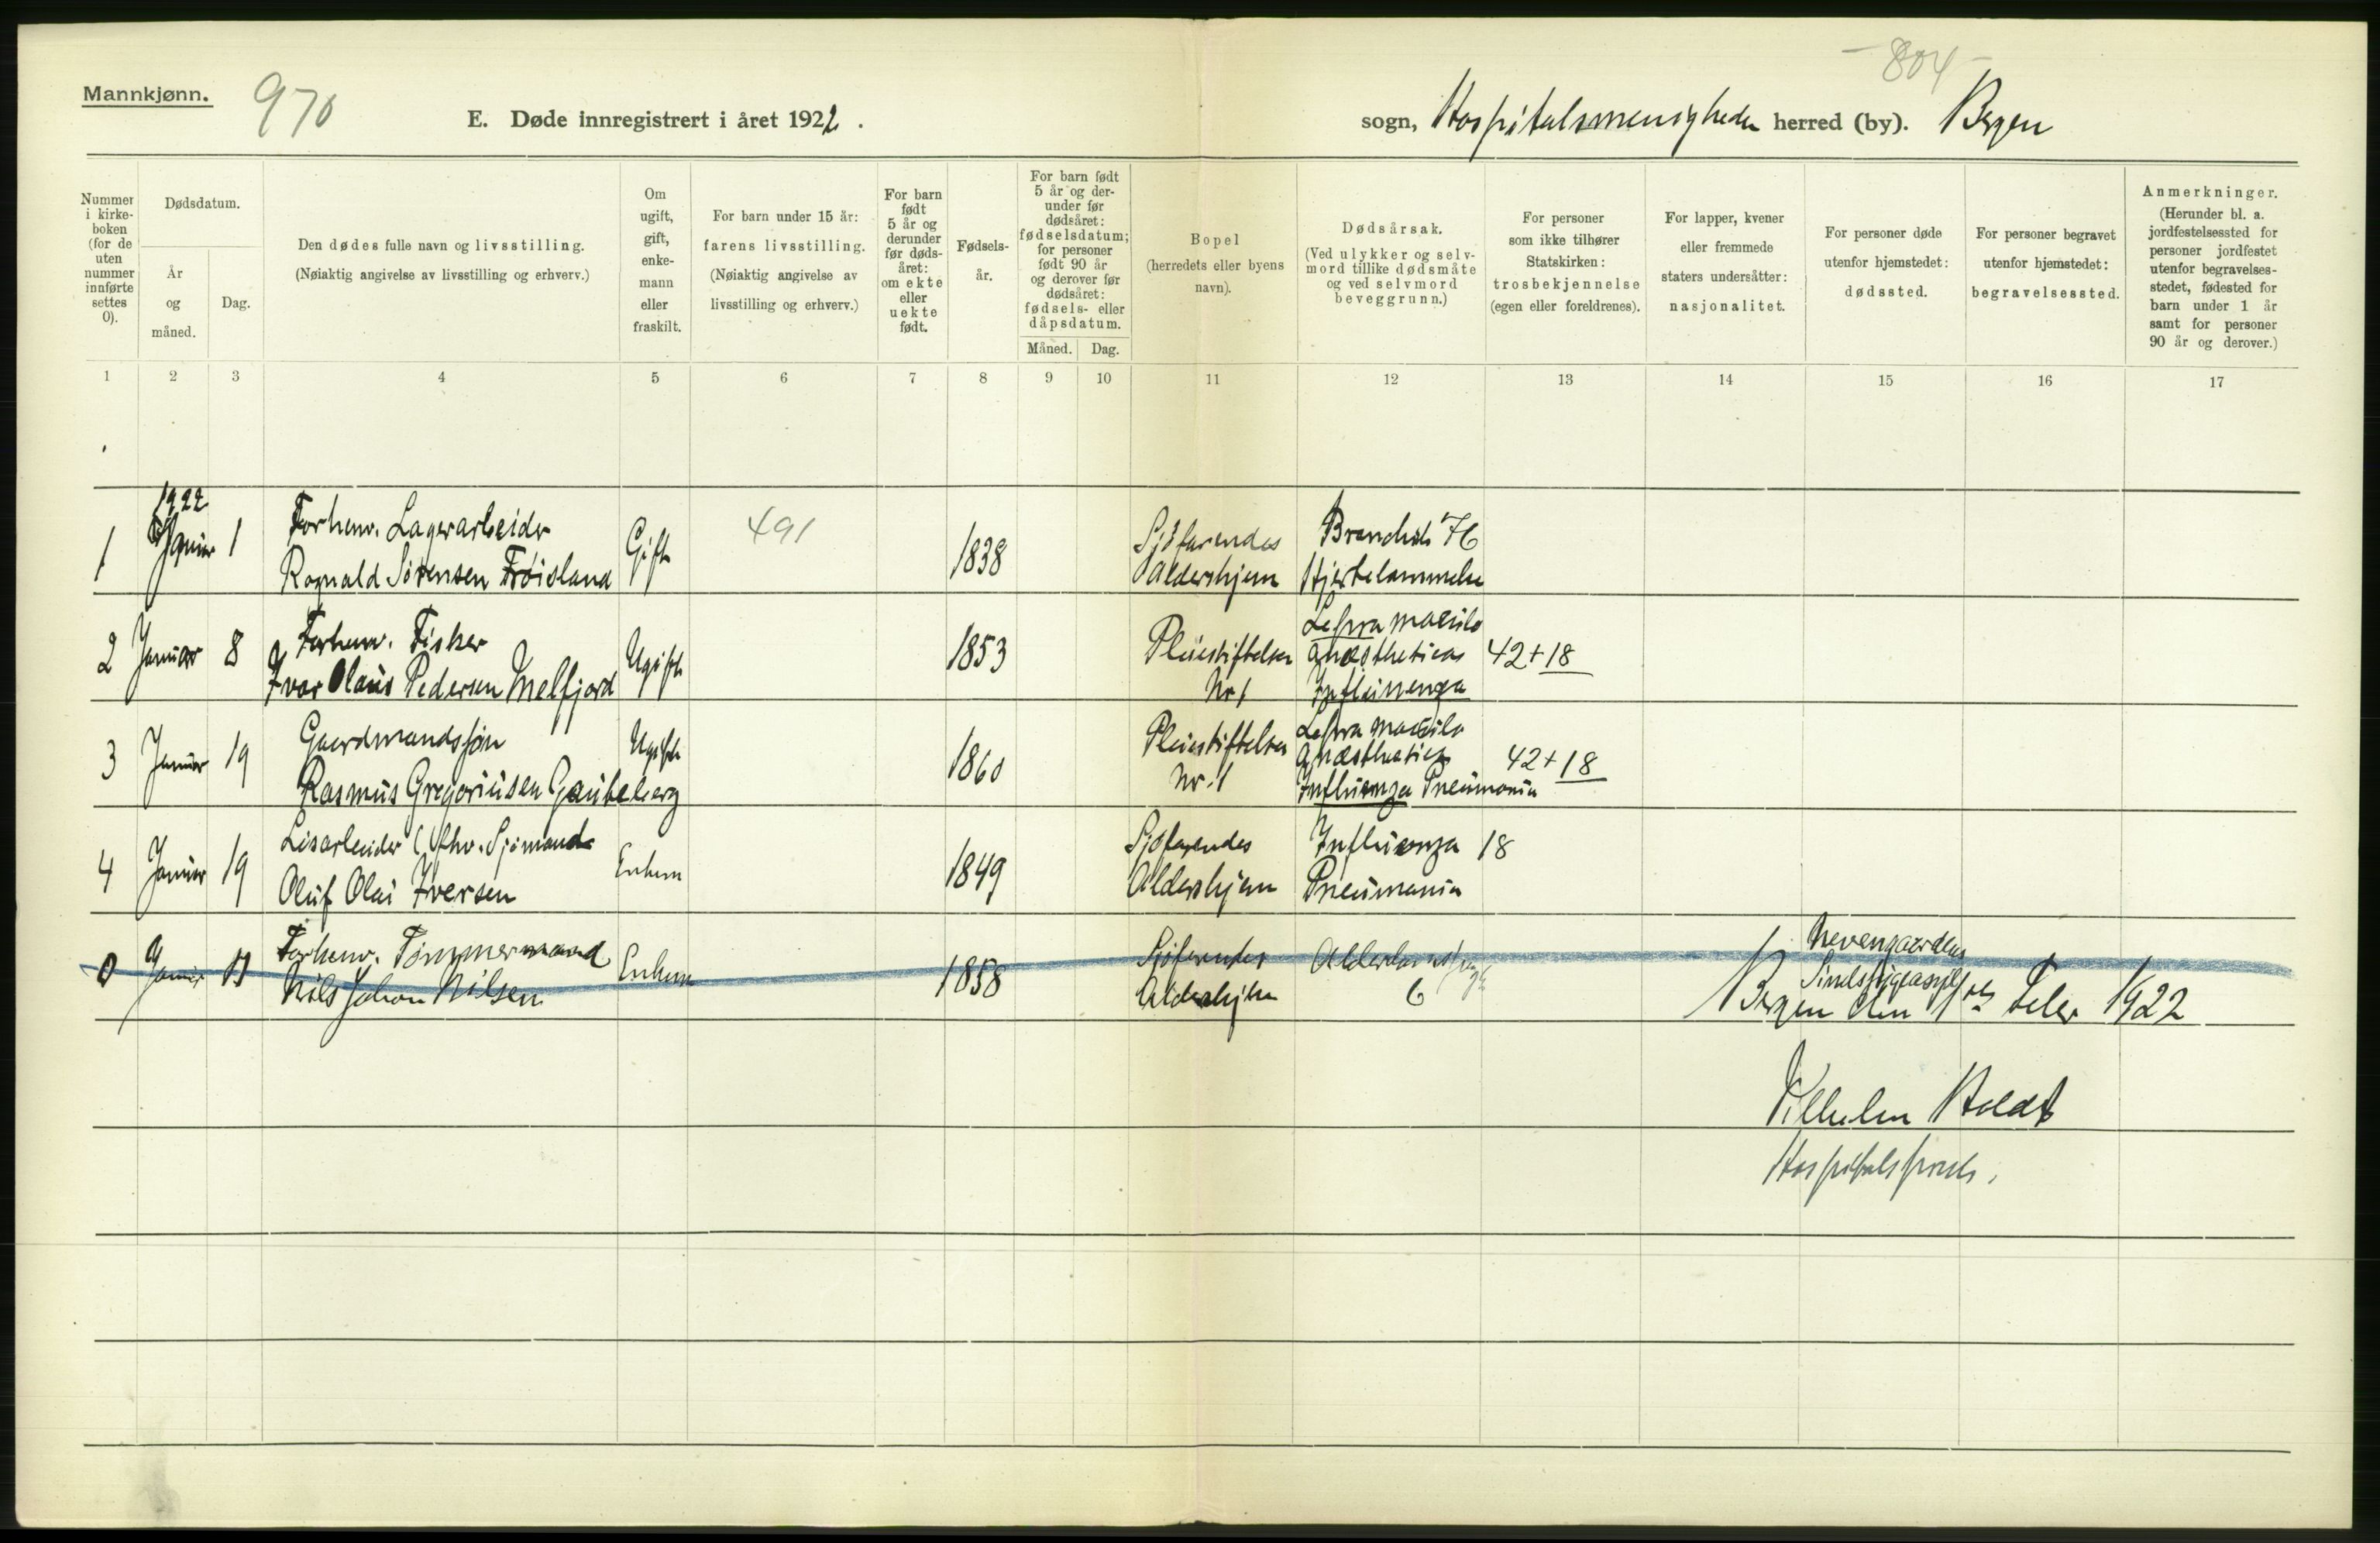 -804-
Mannkjønn. 970
E. Døde innregistrert i året 1922. sogn, Hospitalsmenigheden herred (by). Bergen
Nummer i kirke-boken (for de uten nummer innførte settes 0).
Dødsdatum.
År og måned.
Dag.
Den dødes fulle navn og livsstilling.
(Nøiaktig angivelse av livsstilling og erhverv.)
Om ugift, gift, enke-mann eller fraskilt.
For barn under 15 år:
farens livsstilling.
(Nøiaktig angivelse av
livsstilling og erhverv.)
For barn født 5 år og derunder før døds-året: om ekte eller uekte født.
Fødsels-år.
For barn født 5 år og der-under før dødsåret: fødselsdatum; for personer født 90 år og derover før dødsåret: fødsels- eller dåpsdatum.
Måned. Dag.
Bopel
(herredets eller byens navn).
Dødsårsak.
(Ved ulykker og selv-mord tillike dødsmåte og ved selvmord beveggrunn.)
For personer
som ikke tilhører
Statskirken:
trosbekjennelse
(egen eller foreldrenes).
For lapper, kvener
eller fremmede
staters undersåtter:
nasjonalitet.
For personer døde
utenfor hjemstedet:
dødssted.
For personer begravet
utenfor hjemstedet:
begravelsessted.
Anmerkninger.
(Herunder bl. a. jordfestelsessted for personer jordfestet utenfor begravelses-stedet, fødested for barn under 1 år samt for personer 90 år og derover.)
1 2 3 4 5 6 7 8 9 10 11 12 13 14 15 16 17
1922
1 Januar 1 Forhenv. Lagerarbeider Gift 491 1838 Sjöfarendes Bronchit 76
Ragnald Sörensen Fröisland Aldershjem Hjertelammelse
2 Januar 8 Forhenv. Fisker Ugift 1853 Pleiestiftelsen Lepra maculo
Ivar Olaus Pedersen Melfjord Nr 1 anæsthetica 42+18
Influenenza
3 Januar 19 Gaardmandssön Ugift 1860 Pleiestiftelsen Lepra maculo
Rasmus Gregoriusen Gauteberg Nr. 1 anæsthetica 42+18
Influenza Pneumonia
4 Januar 19 Lisarbeider (fhv. Sjömand Enkem 1849 Sjöfarendes Influenza 18
Oluf Olai Iversen Aldershjem Pneumonia
0 Januar Forhenv. Tömmermand Enkem 1858 Sjöfarendes Nevengaardens
Nils Johan Nilsen Aldershjem 6 Sindssygeasyl
Bergen den 1 Febr 1922
Vilhelm Holdt
Hospitalsprest.